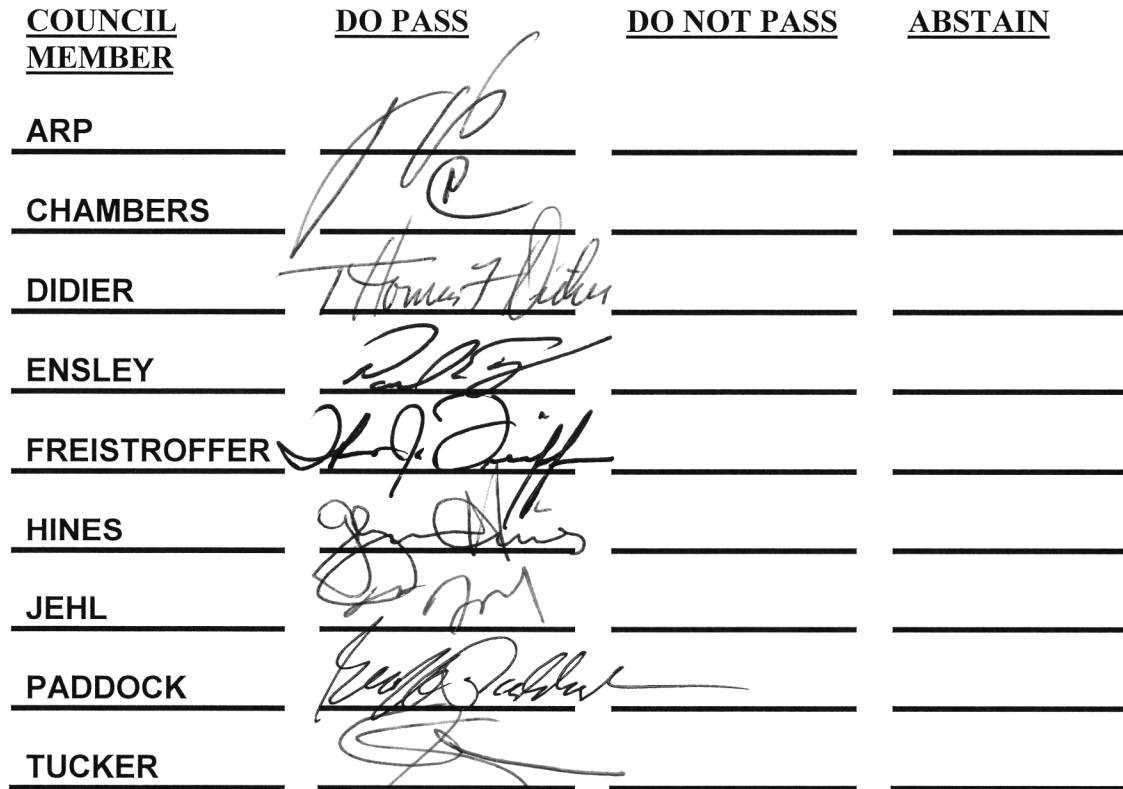 COUNCIL MEMBER DO PASS DO NOT PASS ABSTAIN
ARP
CHAMBERS
DIDIER Thomas F Didier
ENSLEY
FREISTROFFER
HINES Hines
JEHL
PADDOCK Paddock
TUCKER